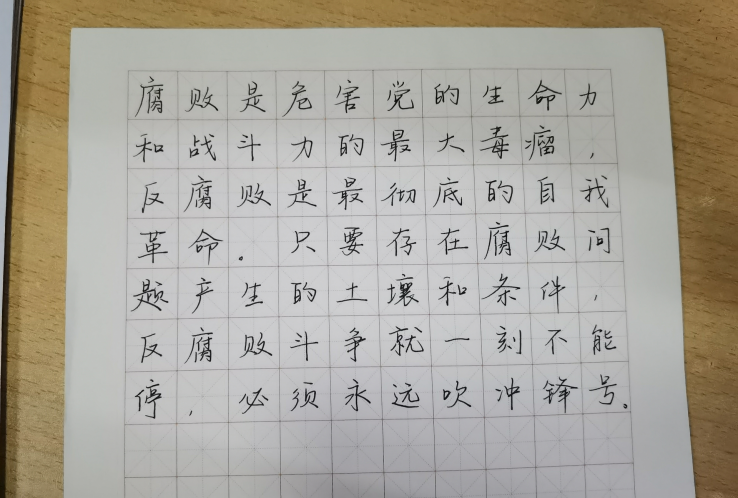 腐败是危害党的生命力
和战斗力的最大毒瘤，
反腐败是最彻底的自我
革命。只要存在腐败问
题产生的土壤和条件，
反腐败斗争就一刻不能
停，必须永远吹冲锋号。